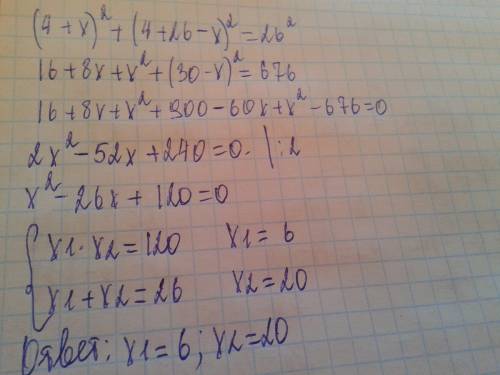 (4+x)² + (4+26-x)² = 26²
16+8x+x²+(30-x)²=676
16+8x+x²+900-60x+x²-676=0
2x²-52x+240=0. |:2
x²-26x+120=0
{ x1·x2=120 x1=6
x1+x2=26 x2=20
Ответ: x1=6; x2=20